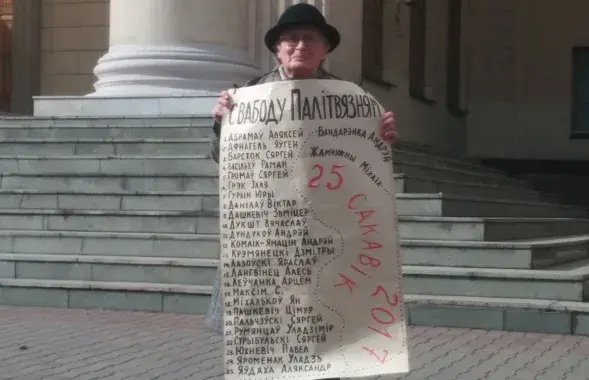 Свабоду Палітвязням
1. Абрамаў Аляксей
2. Афнагель Яўген
3. Барсток Сяргей
4. Васільеў Раман
5. Громаў Сяргей
6. Грэк Іаля
7. Гурын Юры
8. Данілаў Віктар
9. Дашкевіч Зьміцер
10. Дукшт Вячаслаў
11. Дундукоў Андрэй
12. Комлік-Ямацін Андрэй
13. Крэмянецкі Дзмітры
14. Лазоўскі Яраслаў
15. Лангвінец Алесь
16. Леўчанка Арцем
17. Максім С.
18. Міхалькоў Ян
19. Пашкевіч Цімур
20. Пальчэўскі Сяргей
21. Румянцаў Уладзімір
22. Стрыбульскі Сяргей
23. Юхневіч Павел
24. Яроменак Уладзь
25. Яўдаха Аляксандр
Бандарэнка Андрэй
Жамчужны Міхаіл
25 сакавік 2017